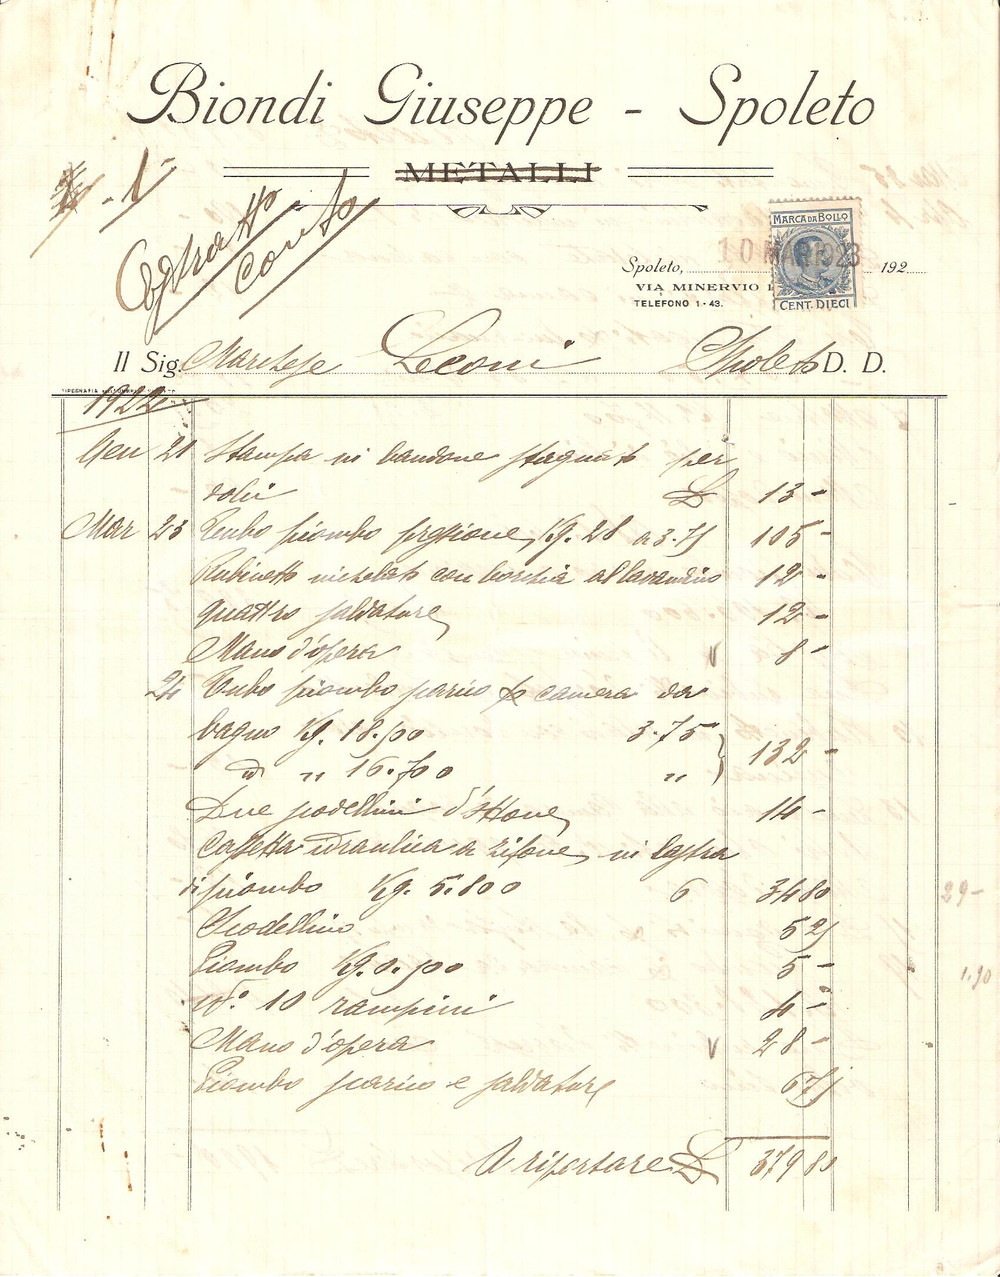 Biondi Giuseppe - Spoleto
METALLI
1
Estratto
conto
MARCA DA BOLLO
CENT. DIECI
10 MAR 1923
Spoleto, 192
VIA MINERVIO
TELEFONO 1-43.
Il Sig. Marchese Leconi Spoleto D. D.
1922
Gen 21 Stampa in bandone stagnato per
dolci L 13 -
Mar 23 Tubo piombo pressione, Kg. 28 a 3.75 105 -
Rubinetto nichelato con borchia al lavandino 12 -
quattro saldature 12 -
Mano d'opera 8 -
24 Tubo piombo scarico camera da
bagno Kg. 18.500 3.75
" 16.700 " 132 -
Due piombo d'ottone 14 -
Cassetta idraulica a sifone, in lastra
di piombo Kg. 5.800 6 34 80
5 25
Piombo Kg. 0.500 5 -
N.º 10 rampini 4 -
Mano d'opera 28 -
Piombo scarico e saldature 6 75
A riportare L 379 80